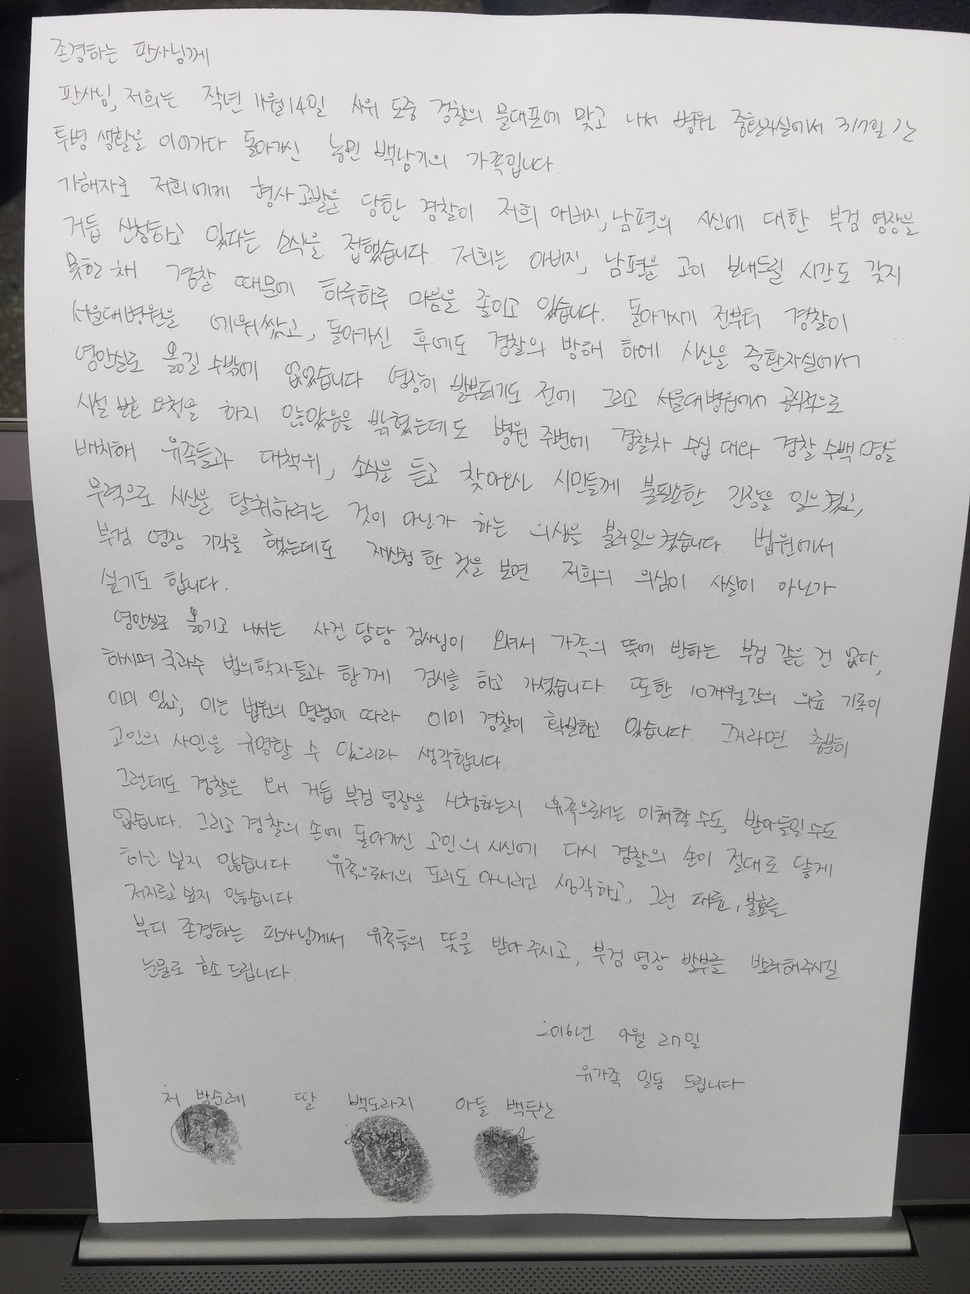 존경하는 판사님께
판사님, 저희는 작년 11월14일 시위 도중 경찰의 물대포에 맞고 나서 병원 중환자실에서 317일간
투병 생활을 이어가다 돌아가신 농민 백남기의 가족입니다.
가해자로 저희에게 형사고발을 당한 경찰이 저희 아버지, 남편의 시신에 대한 부검 영장을
거듭 신청하고 있다는 소식을 접했습니다. 저희는 아버지, 남편을 고이 보내드릴 시간도 갖지
못한 채 경찰 때문에 하루하루 마음을 졸이고 있습니다. 돌아가시기 전부터 경찰이
서울대병원을 에워쌌고, 돌아가신 후에도 경찰의 방해 하에 시신을 중환자실에서
영안실로 옮길 수밖에 없었습니다 영장이 발부되기도 전에 그리고 서울대병원에서 공식적으로
시설 보호 요청을 하지 않았음을 밝혔는데도 병원 주변에 경찰차 수십 대와 경찰 수백 명을
배치해 유족들과 대책위, 소식을 듣고 찾아오신 시민들께 불필요한 긴장을 일으켰고,
무력으로 시신을 탈취하려는 것이 아닌가 하는 의심을 불러일으켰습니다. 법원에서
부검 영장 기각을 했는데도 재신청 한 것을 보면 저희의 의심이 사실이 아닌가
싶기도 합니다.
영안실로 옮기고 나서는 사건 담당 검사님이 오셔서 가족의 뜻에 반하는 부검 같은 건 없다,
하시며 국과수 법의학자들과 함께 검시를 하고 가셨습니다. 또한 10개월간의 의료 기록이
이미 있고, 이는 법원의 명령에 따라 이미 경찰이 확보하고 있습니다. 그거라면 충분히
고인의 사인을 규명할 수 있으리라 생각합니다.
그런데도 경찰은 왜 거듭 부검 영장을 신청하는지 유족으로서는 이해할 수도, 받아들일 수도
없습니다. 그리고 경찰의 손에 돌아가신 고인의 시신에 다시 경찰의 손이 절대로 닿게
하고 싶지 않습니다 유족으로서의 도리도 아니라고 생각하고, 그런 패륜, 불효를
저지르고 싶지 않습니다
부디 존경하는 판사님께서 유족들의 뜻을 받아 주시고, 부검 영장 발부를 반려해주시길
눈물로 호소 드립니다
2016년 9월 27일
유가족 일동 드립니다
처 박순례 딸 백도라지 아들 백두산